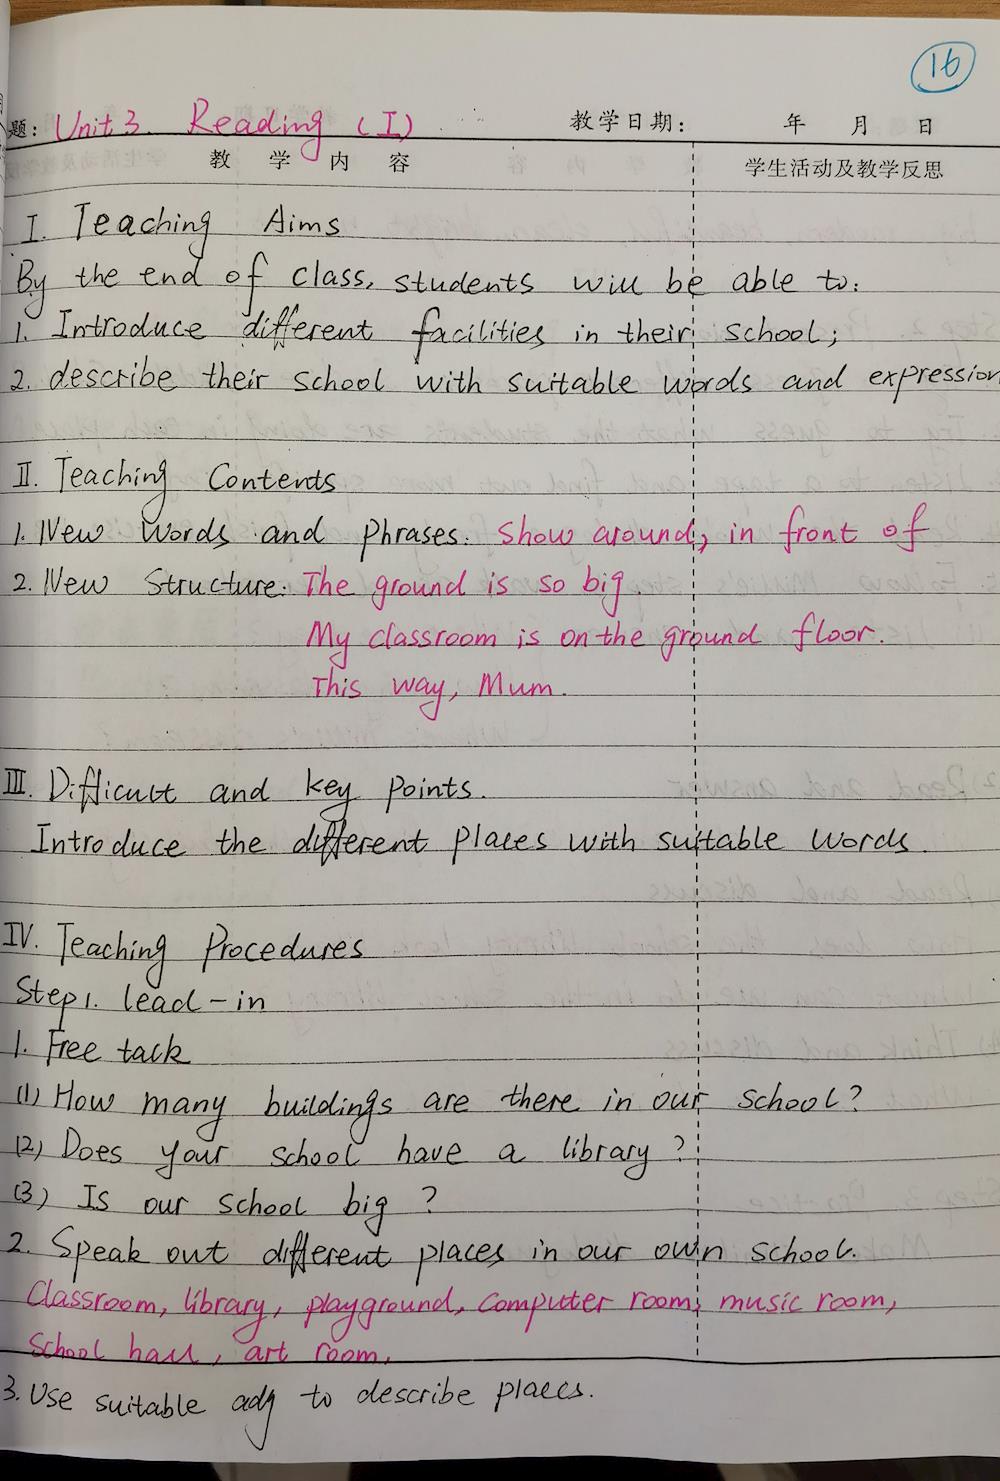 16
题: Unit 3. Reading (I) 教学日期: 年 月 日
教 学 内 容 学生活动及教学反思
I. Teaching Aims
By the end of class, students will be able to:
1. Introduce different facilities in their school;
2. describe their school with suitable words and expression
II. Teaching Contents
1. New Words and Phrases: show around, in front of
2. New Structure: The ground is so big.
My classroom is on the ground floor.
This way, Mum.
III. Difficult and key Points.
Introduce the different places with suitable words.
IV. Teaching Procedures
Step1. lead-in
1. Free talk
(1) How many buildings are there in our school?
(2) Does your school have a library?
(3) Is our school big?
2. Speak out different places in our own school.
Classroom, library, playground, computer room, music room,
School hall, art room.
3. Use suitable adj to describe places.